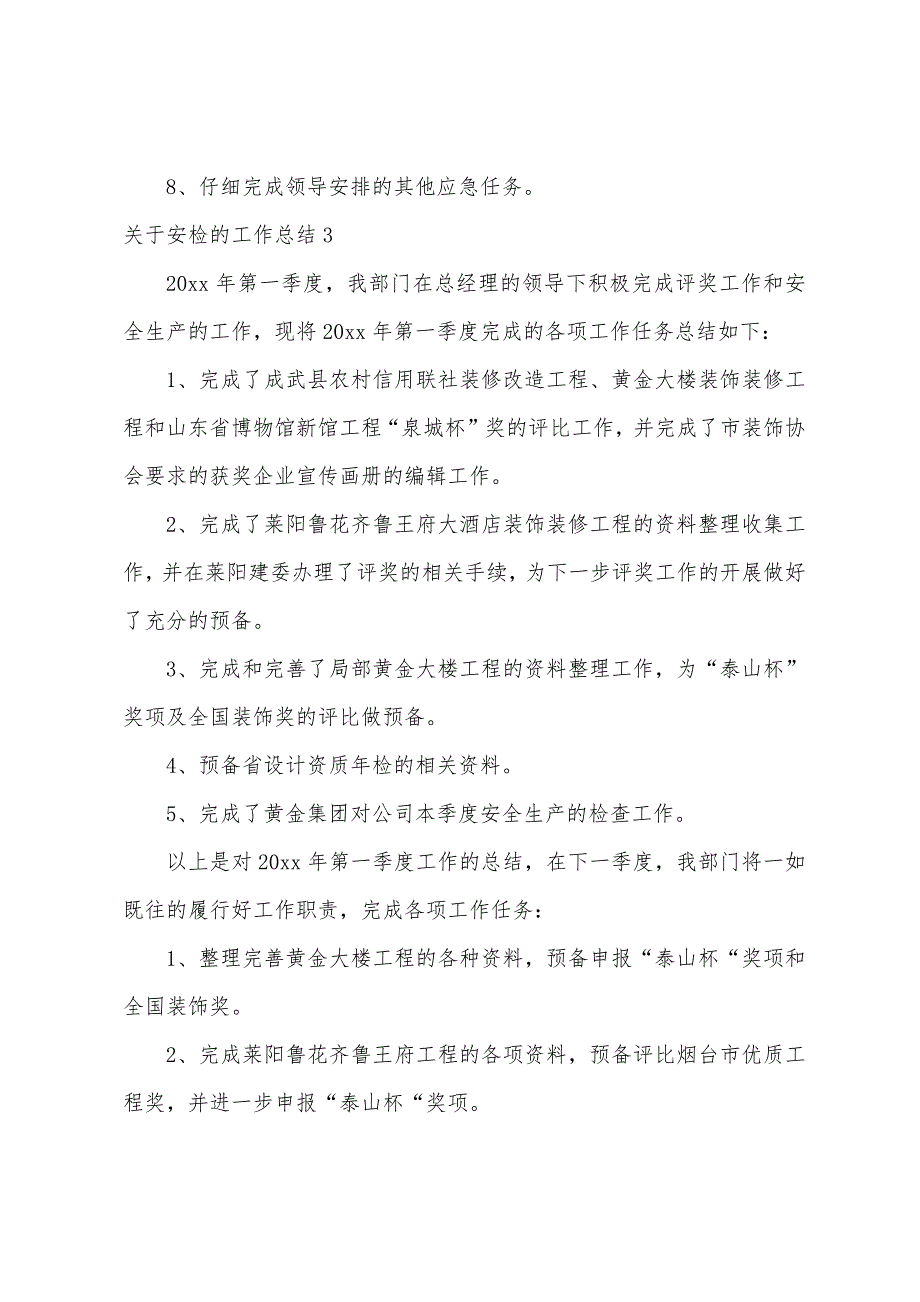 8、仔细完成领导安排的其他应急任务。
关于安检的工作总结3
20xx年第一季度，我部门在总经理的领导下积极完成评奖工作和安
全生产的工作，现将20xx年第一季度完成的各项工作任务总结如下：
1、完成了成武县农村信用联社装修改造工程、黄金大楼装饰装修工
程和山东省博物馆新馆工程“泉城杯”奖的评比工作，并完成了市装饰协
会要求的获奖企业宣传画册的编辑工作。
2、完成了莱阳鲁花齐鲁王府大酒店装饰装修工程的资料整理收集工
作，并在莱阳建委办理了评奖的相关手续，为下一步评奖工作的开展做好
了充分的预备。
3、完成和完善了局部黄金大楼工程的资料整理工作，为“泰山杯”
奖项及全国装饰奖的评比做预备。
4、预备省设计资质年检的相关资料。
5、完成了黄金集团对公司本季度安全生产的检查工作。
以上是对20xx年第一季度工作的总结，在下一季度，我部门将一如
既往的履行好工作职责，完成各项工作任务：
1、整理完善黄金大楼工程的各种资料，预备申报“泰山杯“奖项和
全国装饰奖。
2、完成莱阳鲁花齐鲁王府工程的各项资料，预备评比烟台市优质工
程奖，并进一步申报“泰山杯“奖项。